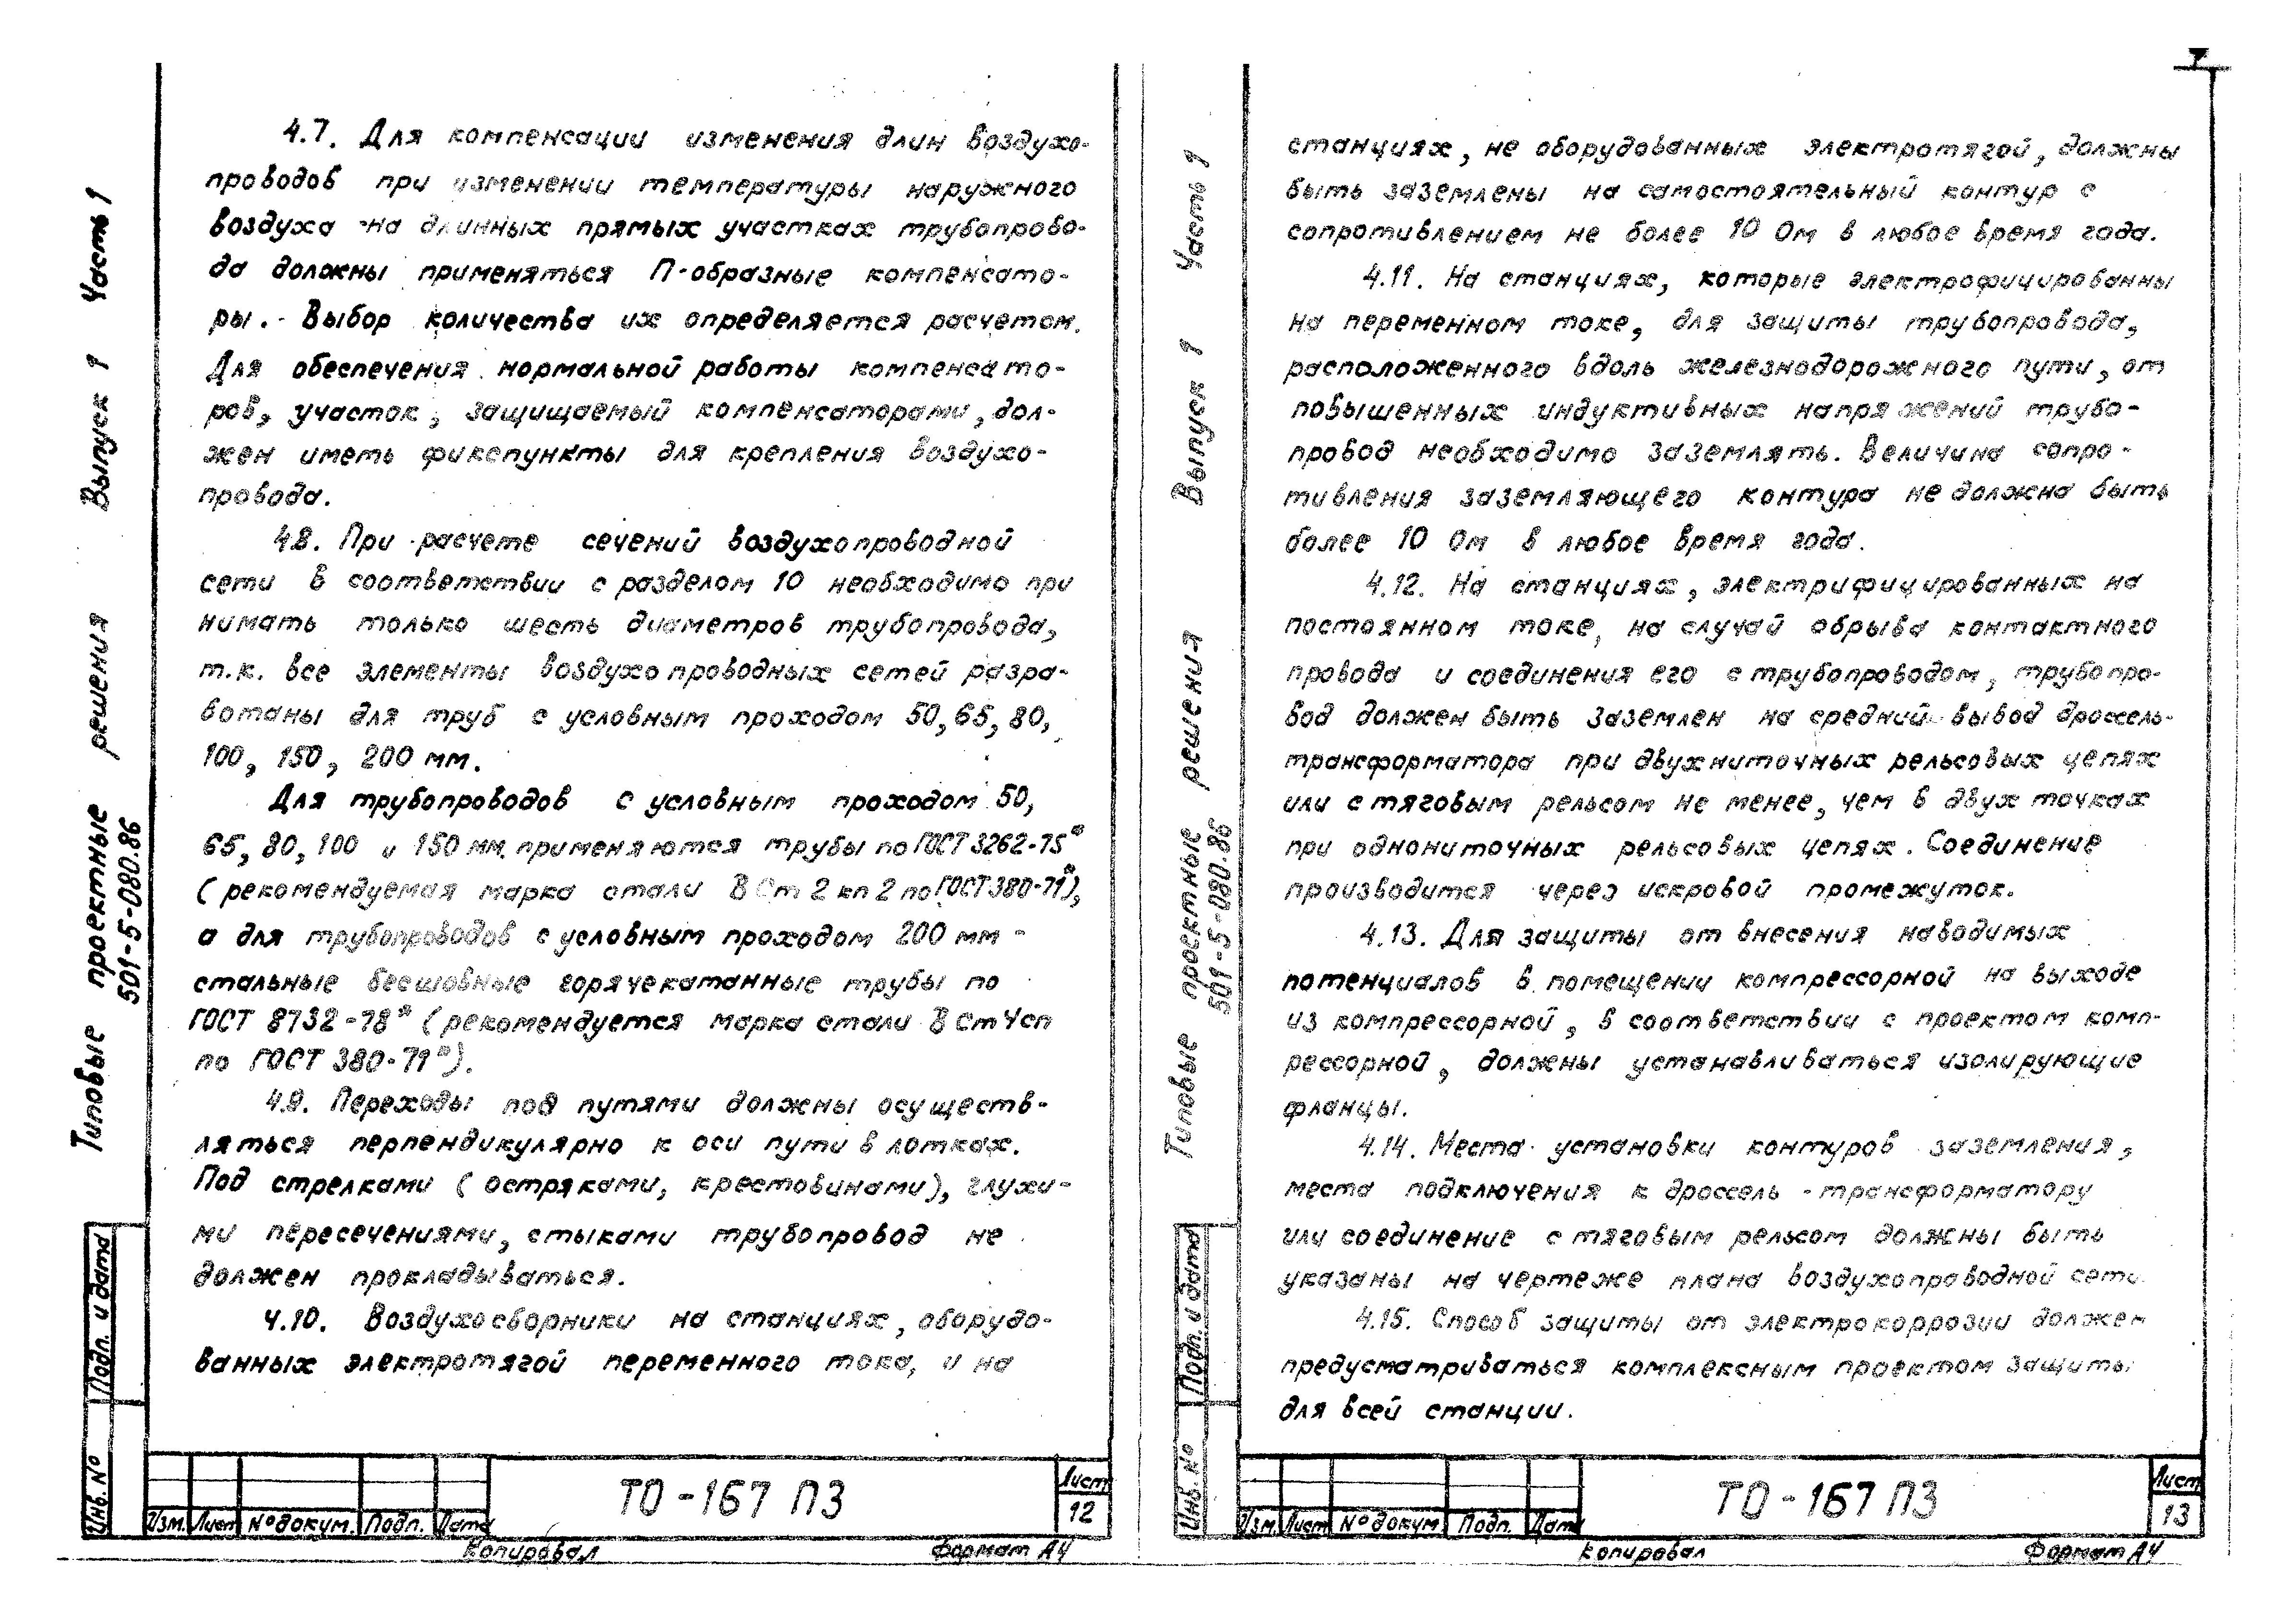 4.7. Для компенсации изменения длин воздухо-
проводов при изменении температуры наружного
воздуха на длинных прямых участках трубопрово-
да должны применяться П-образные компенсато-
ры. Выбор количества их определяется расчетом.
Для обеспечения нормальной работы компенсато-
ров, участок, защищаемый компенсаторами, дол-
жен иметь фикспункты для крепления воздухо-
провода.
4.8. При расчете сечений воздухопроводной
сети в соответствии с разделом 10 необходимо при
нимать только шесть диаметров трубопровода,
т.к. все элементы воздухопроводных сетей разра-
ботаны для труб с условным проходом 50, 65, 80,
100, 150, 200 мм.
Для трубопроводов с условным проходом 50,
65, 80, 100 и 150 мм применяются трубы по ГОСТ 3262-75*
(рекомендуемая марка стали ВСт2кп2 по ГОСТ 380-71*),
а для трубопроводов с условным проходом 200 мм -
стальные бесшовные горячекатанные трубы по
ГОСТ 8732-78* (рекомендуется марка стали ВСт4сп
по ГОСТ 380-71*).
4.9. Переходы под путями должны осуществ-
ляться перпендикулярно к оси пути в лотках.
Под стрелками (остряками, крестовинами), глухи-
ми пересечениями, стыками трубопровод не
должен прокладываться.
4.10. Воздухосборники на станциях, оборудо-
ванных электротягой переменного тока, и на
Типовые проектные решения Выпуск 1 Часть 1
501-5-080.86
Подп. и дата
Инв. №
Изм. Лист № докум. Подп. Дата
ТО-167 ПЗ
Лист
12
Копировал Формат А4
7
станциях, не оборудованных электротягой, должны
быть заземлены на самостоятельный контур с
сопротивлением не более 10 Ом в любое время года.
4.11. На станциях, которые электрофицированны
на переменном токе, для защиты трубопровода,
расположенного вдоль железнодорожного пути, от
повышенных индуктивных напряжений трубо-
провод необходимо заземлять. Величина сопро-
тивления заземляющего контура не должна быть
более 10 Ом в любое время года.
4.12. На станциях, электрифицированных на
постоянном токе, на случай обрыва контактного
провода и соединения его с трубопроводом, трубопро-
вод должен быть заземлен на средний вывод дроссель-
трансформатора при двухниточных рельсовых цепях
или с тяговым рельсом не менее, чем в двух точках
при однониточных рельсовых цепях. Соединение
производится через искровой промежуток.
4.13. Для защиты от внесения наводимых
потенциалов в помещении компрессорной на выходе
из компрессорной, в соответствии с проектом комп-
рессорной, должены устанавливаться изолирующие
фланцы.
4.14. Места установки контуров заземления,
места подключения к дроссель-трансформатору
или соединение с тяговым рельсом должны быть
указаны на чертеже плана воздухопроводной сети
4.15. Способ защиты от электрокоррозии должен
предусматриваться комплексным проектом защиты
для всей станции.
Типовые проектные решения Выпуск 1 Часть 1
501-5-080.86
Подп. и дата
Инв. №
Изм. Лист № докум Подп. Дата
ТО-167 ПЗ
Лист
13
Копировал Формат А4